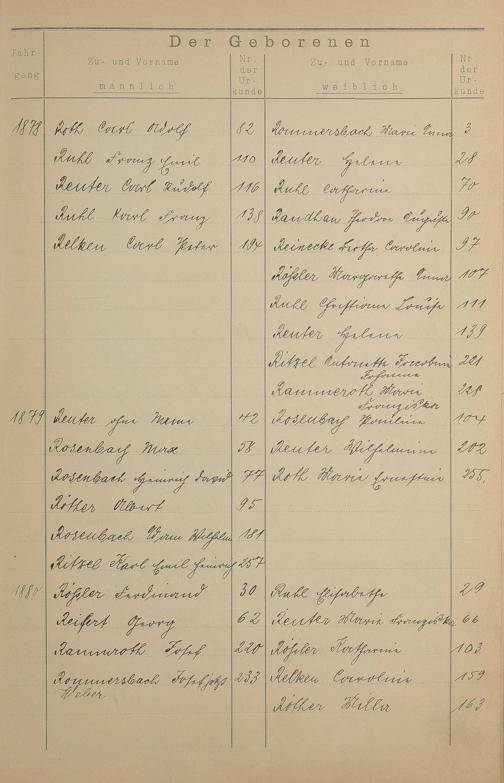 Der Geborenen
Jahr- gang Zu- und Vorname männlich Nr. der Ur- kunde Zu- und Vorname weiblich Nr der Ur- kunde
1878 Roth Carl Adolf 82 Rommersbach Marie Anna 3
Ruhl Franz Emil 110 Reuter Helene 28
Reuter Carl Rudolf 116 Ruhl Catharine 70
Ruhl Karl Franz 138 Randhan Theodore Auguste 90
Relken Carl Peter 194 Reinecke Bertha Caroline 97
Rößler Margarethe Anna 107
Ruhl Christiane Louise 111
Reuter Helene 139
Ritzel Antonette Jacobine 221
Johanna
Rammeroth Marie 228
Franziska
1879 Reuter ohne 42 Rosenbach Pauline 104
Rosenbach Max 58 Reuter Wilhelmine 202
Rosenbach Heinrich David 77 Roth Marie Ernestine 255.
Röther Albert 95
Rosenbach Adam Wilhelm 181
Ritzel Karl Emil Heinrich 257
1880 Rößler Ferdinand 30 Ruhl Elisabethe 29
Reifert Georg 62 Reuter Marie Franziska 66
Rammroth Josef 220 Rößler Katharine 103
Rommersbach Josef jetzt 233 Relken Caroline 159
Weber
Röther Willa 163